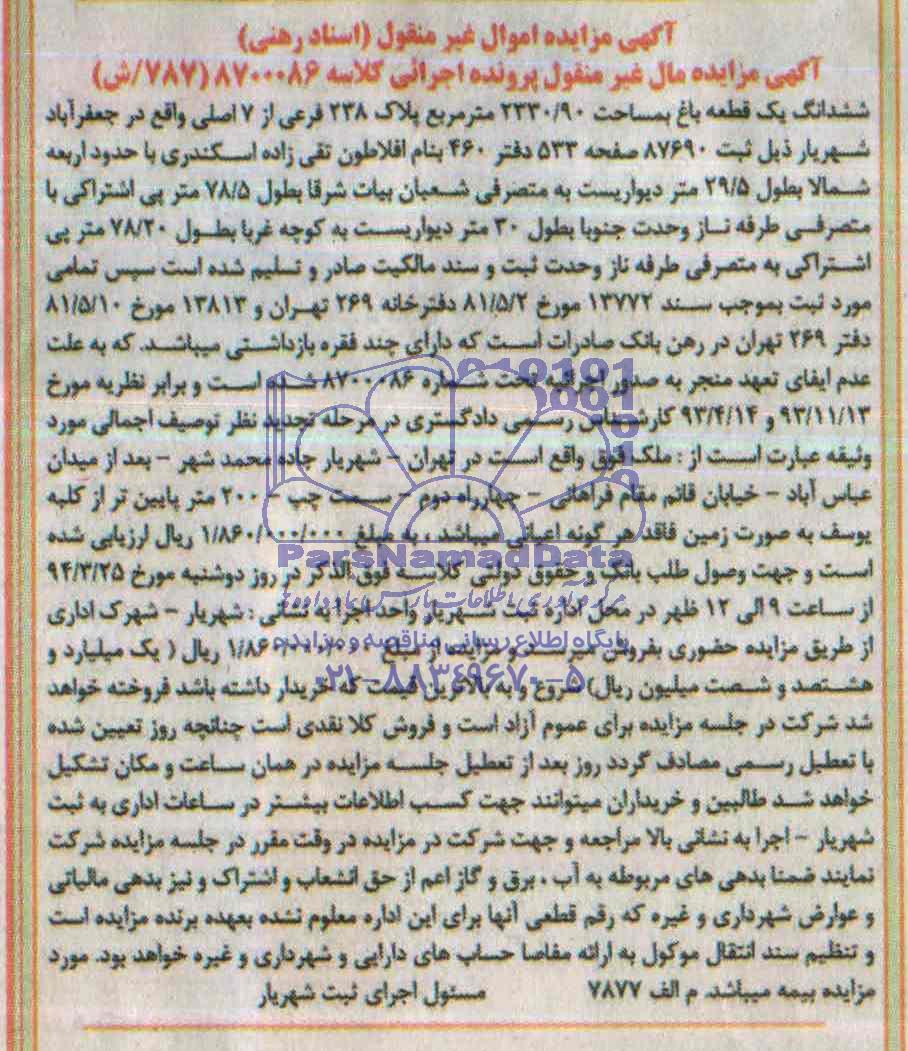 آگهی مزایده اموال غیر منقول (اسناد رهنی)
آگهی مزایده مال غیر منقول پرونده اجرائی کلاسه ۸۷۰۰۰۸۶ (۷۸۷/ش)
ششدانگ یک قطعه باغ بمساحت ۲۳۳۰/۹۰ مترمربع پلاک ۲۳۸ فرعی از ۷ اصلی واقع در جعفرآباد
شهریار ذیل ثبت ۸۷۶۹۰ صفحه ۵۳۳ دفتر ۴۶۰ بنام افلاطون تقی زاده اسکندری با حدود اربعه
شمالا بطول ۲۹/۵ متر دیواریست به متصرفی شعبان بیات شرقا بطول ۷۸/۵ متر پی اشتراکی با
متصرفی طرفه ناز وحدت جنوبا بطول ۳۰ متر دیواریست به کوچه غربا بطول ۷۸/۲۰ متر پی
اشتراکی به متصرفی طرفه ناز وحدت ثبت و سند مالکیت صادر و تسلیم شده است سپس تمامی
مورد ثبت بموجب سند ۱۳۷۷۲ مورخ ۸۱/۵/۲ دفترخانه ۲۶۹ تهران و ۱۳۸۱۳ مورخ ۸۱/۵/۱۰
دفتر ۲۶۹ تهران در رهن بانک صادرات است که دارای چند فقره بازداشتی میباشد. که به علت
عدم ایفای تعهد منجر به صدور اجرائیه تحت شماره ۸۷۰۰۰۸۶ شده است و برابر نظریه مورخ
۹۳/۱۱/۱۳ و ۹۳/۴/۱۴ کارشناس رسمی دادگستری در مرحله تجدید نظر توصیف اجمالی مورد
وثیقه عبارت است از : ملک فوق واقع است در تهران - شهریار جاده محمد شهر - بعد از میدان
عباس آباد - خیابان قائم مقام فراهانی - چهارراه دوم - سمت چپ - ۲۰۰ متر پایین تر از کلبه
یوسف به صورت زمین فاقد هر گونه اعیانی میباشد ، به مبلغ ۱/۸۶۰/۰۰۰/۰۰۰ ریال ارزیابی شده
ParsNamadData
است و جهت وصول طلب بانک و حقوق دولتی کلاسه فوق الذکر در روز دوشنبه مورخ ۹۴/۳/۲۵
از ساعت ۹ الی ۱۲ ظهر در محل اداره ثبت شهریار واحد اجرا به نشانی : شهریار - شهرک اداری
پایگاه اطلاع رسانی مناقصه و مزایده
از طریق مزایده حضوری بفروش میرسد و مزایده از مبلغ ریال ( یک میلیارد و
۰۲۱-۸۸۳۴۹۶۷۰-۵
هشتصد و شصت میلیون ریال) شروع و به بالاترین قیمت که خریدار داشته باشد فروخته خواهد
شد شرکت در جلسه مزایده برای عموم آزاد است و فروش کلا نقدی است چنانچه روز تعیین شده
با تعطیل رسمی مصادف گردد روز بعد از تعطیل جلسه مزایده در همان ساعت و مکان تشکیل
خواهد شد طالبین و خریداران میتوانند جهت کسب اطلاعات بیشتر در ساعات اداری به ثبت
شهریار - اجرا به نشانی بالا مراجعه و جهت شرکت در مزایده در وقت مقرر در جلسه مزایده شرکت
نمایند ضمنا بدهی های مربوطه به آب ، برق و گاز اعم از حق انشعاب و اشتراک و نیز بدهی مالیاتی
و عوارض شهرداری و غیره که رقم قطعی آنها برای این اداره معلوم نشده بعهده برنده مزایده است
و تنظیم سند انتقال موکول به ارائه مفاصا حساب های دارایی و شهرداری و غیره خواهد بود. مورد
مزایده بیمه میباشد. م الف ۷۸۷۷ مسئول اجرای ثبت شهریار